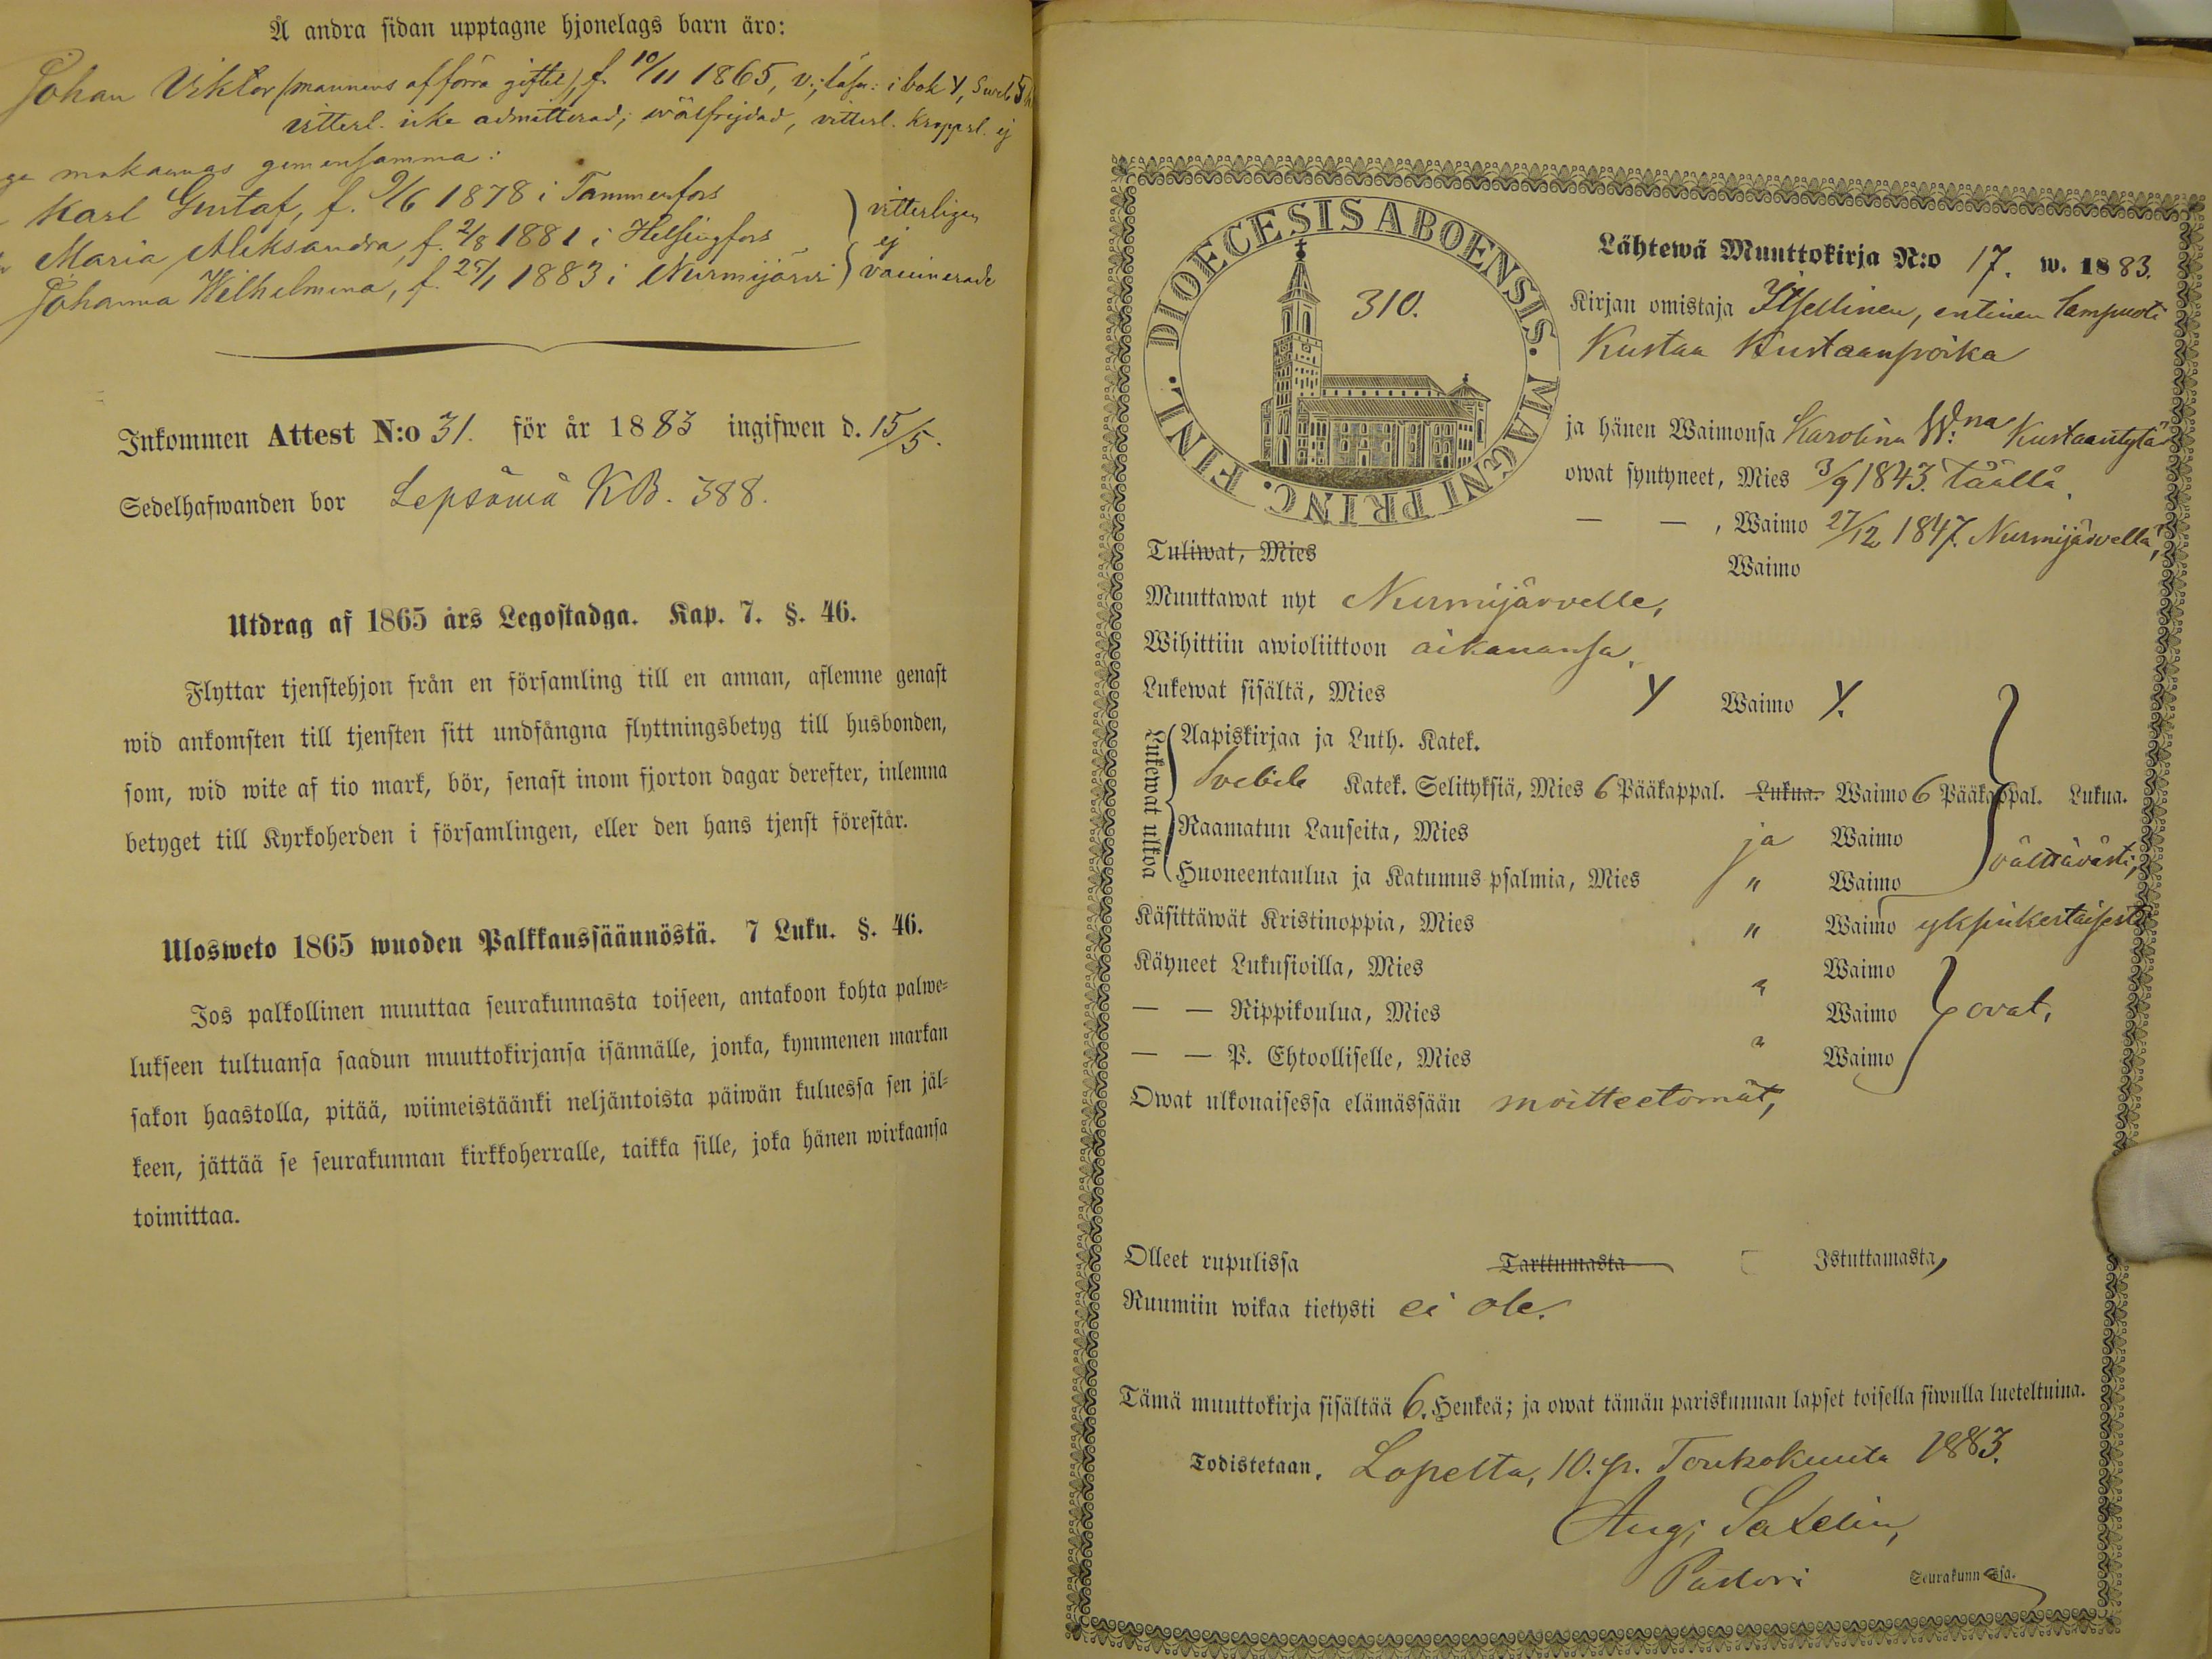 Å andra sidan upptagne hjonelags barn äro:
Johan Viktor (mannens af förra giftet), f. 10/11 1865, v.; läser: i bok Y, Sveb 5
vitterl. icke admitterad; wälfrejdad, vitterl. kroppsl. ej
makarnas gemensamma:
Karl Gustaf, f. 9/6 1878 i Tammerfors
Maria Aleksandra, f. 2/8 1881 i Helsingfors
Johanna Wilhelmina, f. 25/1 1883 i Nurmijärvi
vitterligen
ej
vaccinerade
Inkommen Attest N:o 31. för år 1883 ingifwen d. 15/5.
Sedelhafwanden bor Lepsämä KB. 388.
Utdrag af 1865 års Legostadga. Kap. 7. §. 46.
Flyttar tjenstehjon från en församling till en annan, aflemne genast
wid ankomsten till tjensten sitt undfångna flyttningsbetyg till husbonden,
som, wid wite af tio mark, bör, senast inom fjorton dagar derefter, inlemna
betyget till Kyrkoherden i församlingen, eller den hans tjenst förestår.
Ulosweto 1865 wuoden Palkkaussäännöstä. 7 Luku. §. 46.
Jos palkollinen muuttaa seurakunnasta toiseen, antakoon kohta palwe-
lukseen tultuansa saadun muuttokirjansa isännälle, jonka, kymmenen markan
sakon haastolla, pitää, wiimeistäänki neljäntoista päiwän kuluessa sen jäl-
keen, jättää se seurakunnan kirkkoherralle, taikka sille, joka hänen wirkaansa
toimittaa.
DIOECESIS ABOENSIS. MAGNI PRINC. FINL.
310.
Lähtewä Muuttokirja N:o 17. w. 1883.
Kirjan omistaja Itsellinen, entinen lampuoti
Kustaa Kustaanpoika
ja hänen Waimonsa Karolina W:na Kustaantytär
owat syntyneet, Mies 3/9 1843. täällä,
— — , Waimo 27/12 1847. Nurmijärvellä,
Tuliwat, Mies
Waimo
Muuttawat nyt Nurmijärvelle,
Wihittiin awioliittoon aikanansa,
Lukewat sisältä, Mies Y Waimo Y.
Lukewat ulkoa
Aapiskirjaa ja Luth. Katek.
Svebile Katek. Selityksiä, Mies 6 Pääkappal. Lukua. Waimo 6 Pääkappal. Lukua.
Raamatun Lauseita, Mies ja Waimo
välttävästi,
Huoneentaulua ja Katumus psalmia, Mies " Waimo
Käsittäwät Kristinoppia, Mies " Waimo yksinkertaisesti
Käyneet Lukusioilla, Mies " Waimo
— — Rippikoulua, Mies Waimo ovat,
— — P. Ehtoolliselle, Mies " Waimo
Owat ulkonaisessa elämässään moitteetomat,
Olleet rupulissa Tarttumasta Istuttamasta,
Ruumiin wikaa tietysti ei ole.
Tämä muuttokirja sisältää 6. Henkeä; ja owat tämän pariskunnan lapset toisella siwulla lueteltuina.
Todistetaan. Lopelta, 10. p. Toukokuuta 1883.
Aug; Saxelin,
Pastori Seurakunnassa.